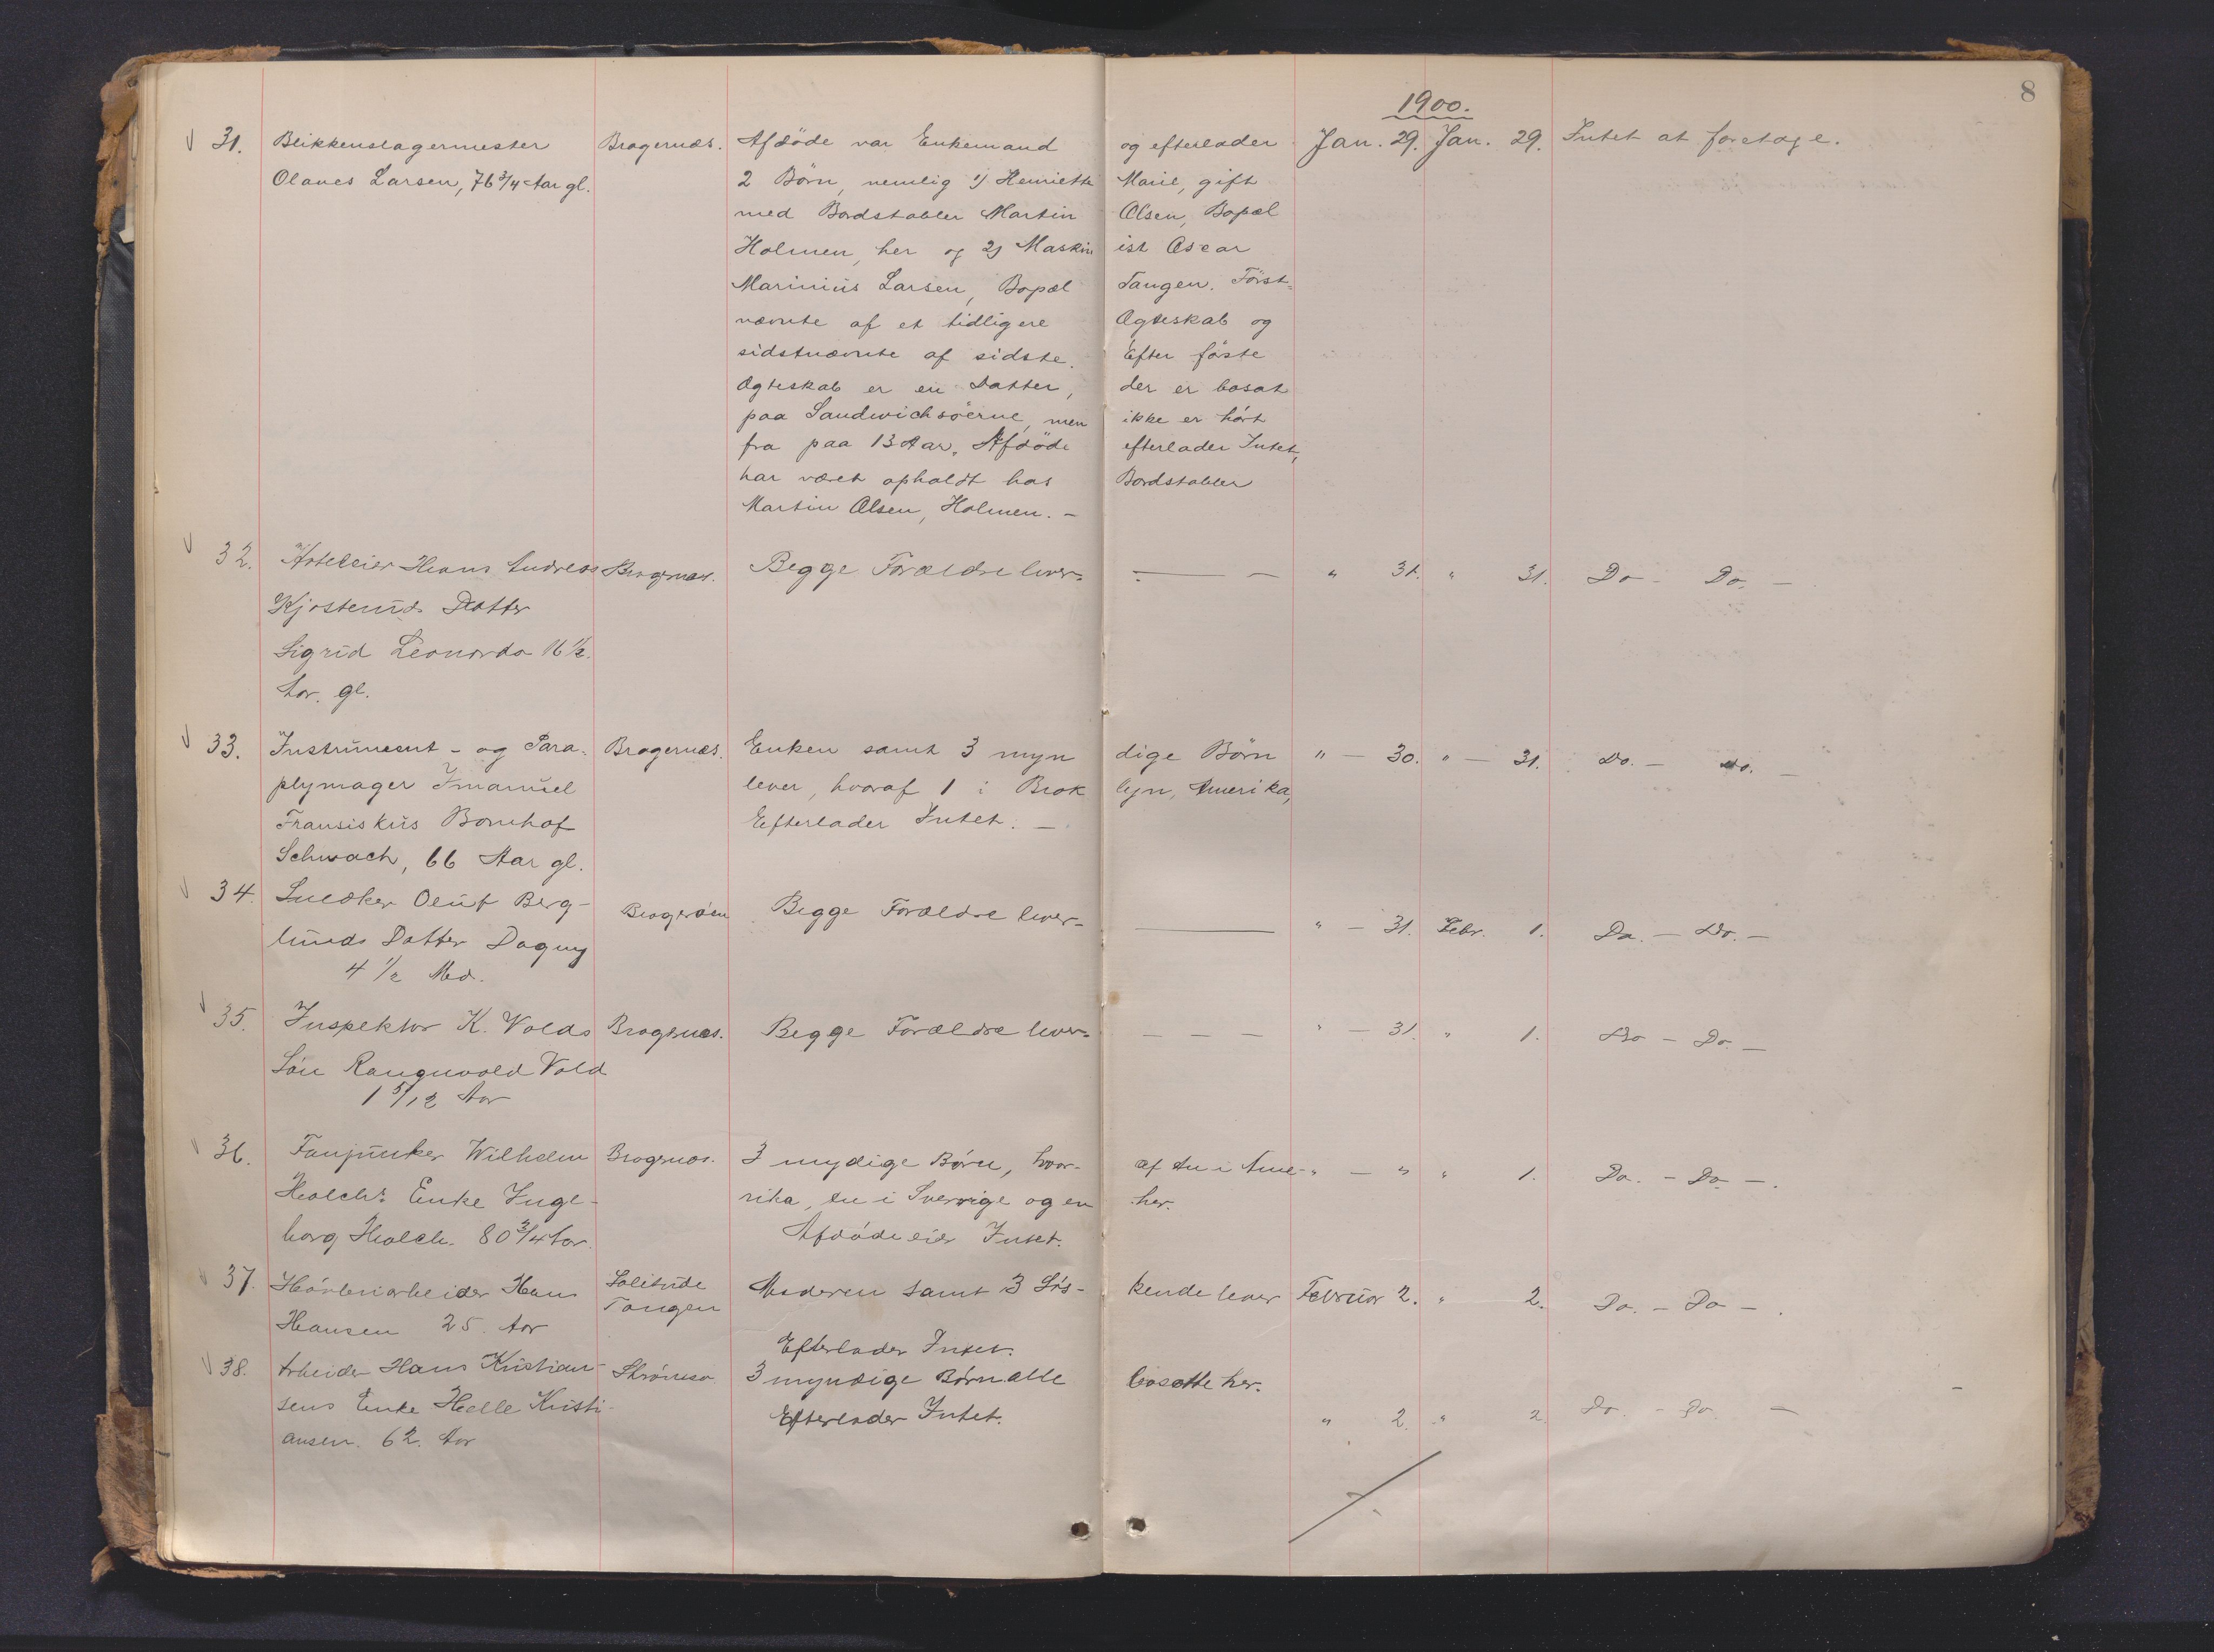 8
1900.
31. Blikkenslagermester Bragernæs. Afdöde var Enkemand og efterlader Jan. 29. Jan. 29. Intet at foretage.
Olaves Larsen, 76 3/4 Aar gl. 2 Börn, nemlig 1) Henriette Marie, gift
med Bordstabler Martin Olsen, Bopæl
Holmen, her og 2) Maskin ist Oscar
Marinius Larsen, Bopæl Tangen. Först-
nævnte af et tidligere Ægteskab og
sidstnævnte af sidste. Efter föste
Ægteskab er en Datter, der er bosat
paa Sandwichsöerne, men ikke er hört
fra paa 13 Aar. Afdöde efterlader Intet,
har været opholdt hos Bordstabler
Martin Olsen, Holmen. -
32. Hans Andreas Bragernæs. Begge Forældre lever- — - " 31. " 31. Do - Do. -
Kjosteruds Datter
Sigrid Leonarda 16 1/2.
Aar. gl.
33. Instrument- og Para- Bragernæs. Enken samt 3 myn dige Börn " - 30. " - 31. Do. - Do. -
plymager Imanuel lever, hvoraf 1 i Brok lyn, Amerika,
Fransiskus Bomhof Efterlader Intet. -
Schwach, 66 Aar gl.
34. Snedker Oluf Berg- Bragerøen Begge Forældre lever- — " - 31. Febr. 1. Do. - Do. -
lunds Datter Dagny
4 1/2 Md.
35. Inspektor K. Volds Bragernæs. Begge Forældre lever- - - - " - 31. " 1. Do - Do. -
Sön Rangnvald Vold
1 5/12 Aar
36. Fanjunker Wilhelm Bragernæs. 3 mydige Börn, hvor- af en i Ame- " - " " 1. Do. - Do - .
Holchs Enke Inge- rika, en i Sverrige og en her.
borg Holch. 80 3/4 Aar. Afdöde eier Intet.
37. Hövleriarbeider Hans Solitude Moderen samt 3 Sös- kende lever Februar 2. " 2. Do. - Do - .
Hansen 25. Aar Tangen
Efterlader Intet.
38. Arbeider Hans Kristian- Strömsø 3 myndige Börn alle bosatte her. " 2. " 2 Do. - Do. -
sens Enke Helle Kristi- Efterlader Intet.
ansen. 62. Aar